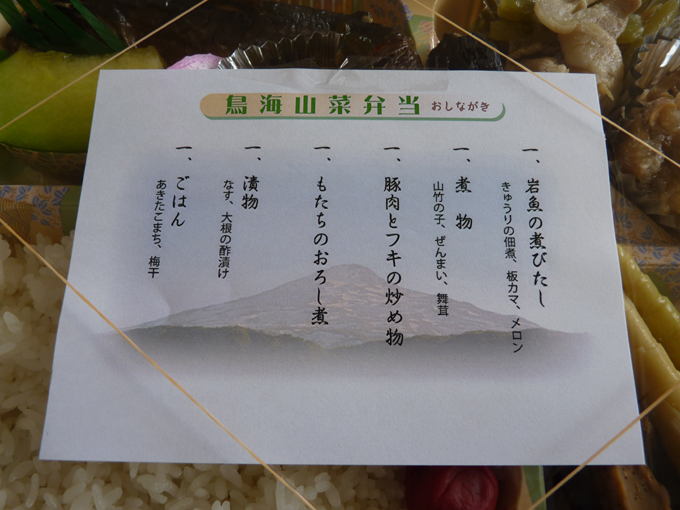 鳥海山菜弁当 おしながき
一、岩魚の煮びたし
きゅうりの佃煮、板カマ、メロン
一、煮物
山竹の子、ぜんまい、舞茸
一、豚肉とフキの炒め物
一、もたちのおろし煮
一、漬物
なす、大根の酢漬け
一、ごはん
あきたこまち、梅干